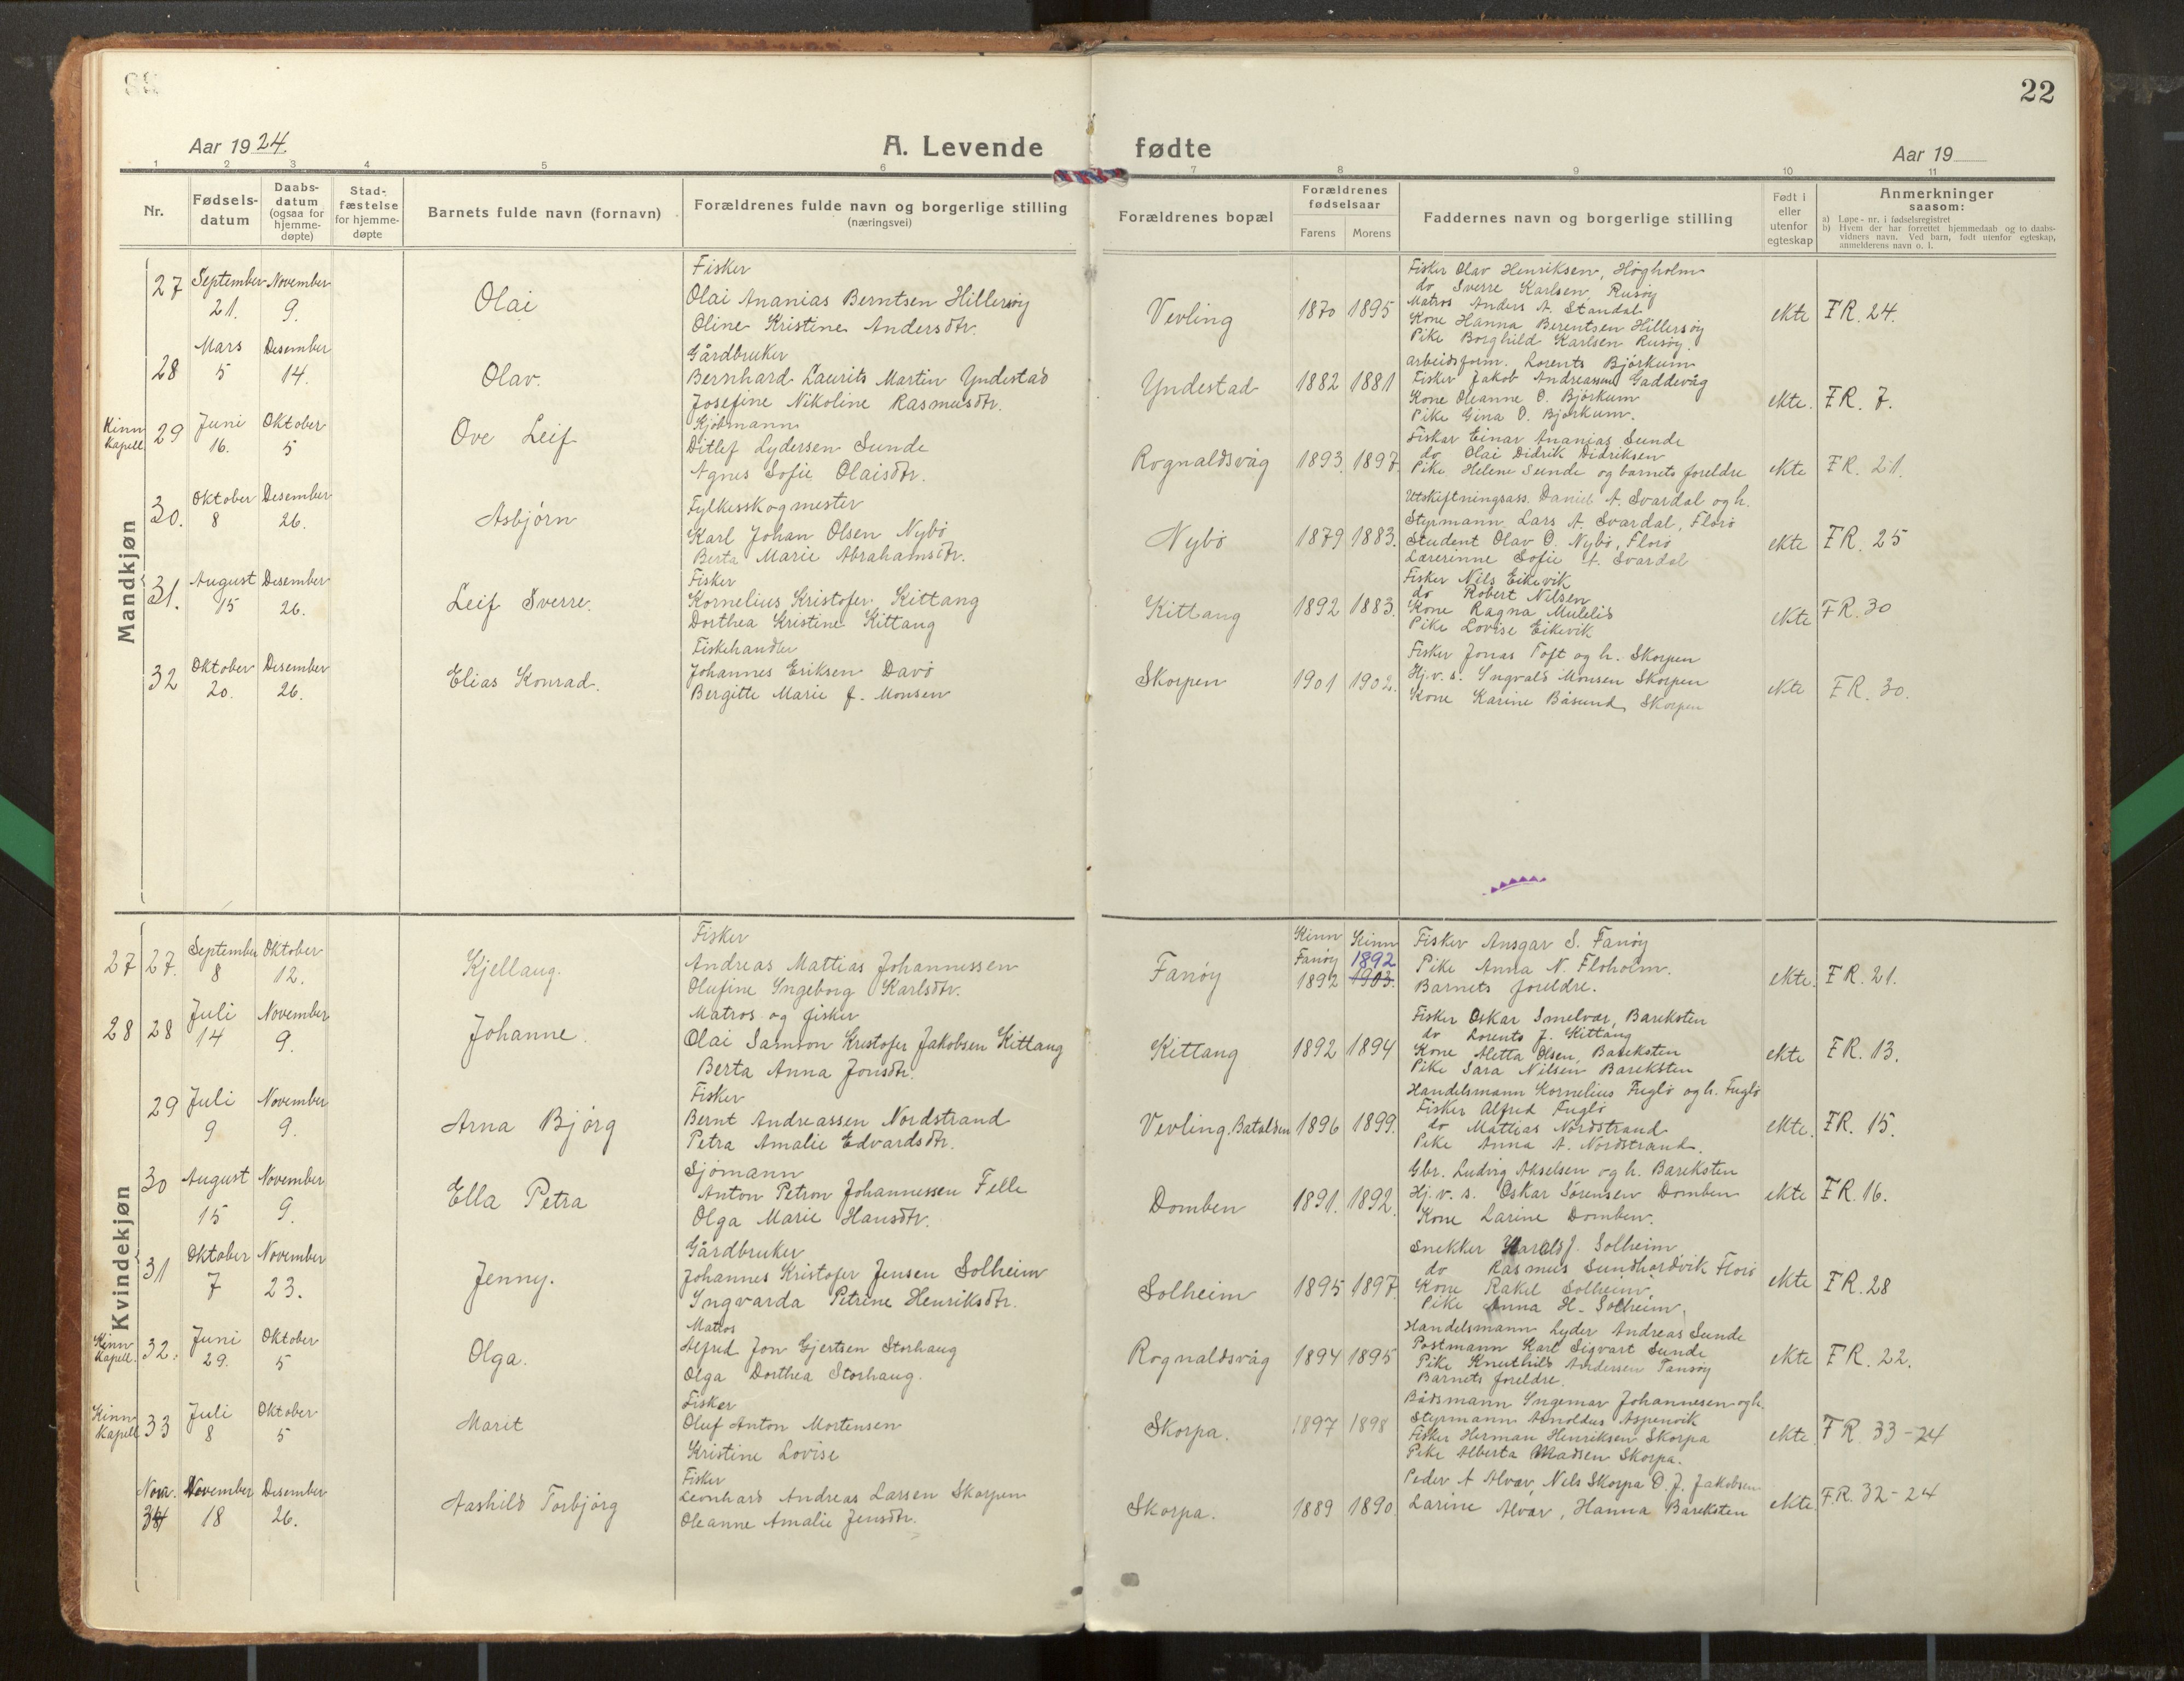 22
Aar 1924.
A. Levende fødte
Aar 19
1 2 3 4 5 6 7 8 9 10 11
Nr.
Fødsels-
datum
Daabs-
datum
(ogsaa for
hjemme-
døpte)
Stad-
fæstelse
for hjemme-
døpte
Barnets fulde navn (fornavn)
Forældrenes fulde navn og borgerlige stilling
(næringsvei)
Forældrenes bopæl
Forældrenes
fødselsaar
Farens Morens
Faddernes navn og borgerlige stilling
Født i
eller
utenfor
egteskap
Anmerkninger
saasom:
a) Løpe-nr. i fødselsregistret
b) Hvem der har forrettet hjemmedaab og to daabs-
vidners navn. Ved barn, født utenfor egteskap,
anmelderens navn o. l.
Mandkjøn
27 September 21. November 9.
Olai
Fisker
Olai Ananias Berntsen Hillersøy
Oline Kristine Andersdtr.
Vevling 1870 1895
Fisker Olav Henriksen, Høgholm
do Sverre Karlsen, Rusøy
Matros Anders A. Standal
Kone Hanna Berentsen Hillersøy
Pike Borghild Karlsen Rusøy.
ekte FR. 24.
28 Mars 5 Desember 14.
Olav.
Gårdbruker
Bernhard Laurits Martin Yndestad
Josefine Nikoline Rasmusdtr.
Yndestad 1882 1881
arbeidsform. Lorents Bjørkum
Fisker Jakob Andreassen Gaddevåg
Kone Oleanne O. Bjørkum
Pike Gina O. Bjørkum.
ekte. FR. 7.
Kinn Kapell 29 Juni 16. Oktober 5
Ove Leif
Sjømann
Ditlef Lydersen Sunde
Agnes Sofie Olaisdtr.
Rognaldsvåg 1893. 1897.
Fisker Einar Ananias Sunde
do Olai Didrik Didriksen
Pike Helene Sunde og barnets foreldre
ekte FR. 21.
30. Oktober 8 Desember 26.
Asbjørn
Fylkesskogmester
Karl Johan Olsen Nybø
Berta Marie Abrahamsdtr.
Nybø 1879 1883.
Utskiftningsass. Daniel A. Svardal og h.
Styrmann Lars A. Svardal, Florø
Student Olav O. Nybø, Florø
Lærerinne Sofie A. Svardal
ekte FR. 25
31. August 15 Desember 26.
Leif Sverre.
Fisker
Kornelius Kristofer Kittang
Dorthea Kristine Kittang
Kittang 1892 1883.
Fisker Nils Eikevik
do Robert Nilsen
Kone Ragna Mulelid
Pike Lovise Eikevik
ekte FR. 30
32 Oktober 20. Desember 26.
Elias Konrad.
Fiskehandler
Johannes Eriksen Davø
Bergitte Marie J. Monsen
Skorpen 1901 1902.
Fisker Jonas Toft og h. Skorpen
Hj.v.s. Yngvald Monsen Skorpen
Kone Karine Båsund, Skorpen
ekte FR. 30.
Kvindekjøn
27 27. September 8 Oktober 12.
Kjellaug.
Fisker
Andreas Mattias Johannessen
Olufine Yngeborg Karlsdtr.
Fanøy
Kinn Kinn
Fanøy 1892
1892 1903.
Fisker Ansgar S. Fanøy
Pike Anna N. Floholm.
Barnets foreldre.
ekte. FR. 21.
28 28 Juli 14 November 9.
Johanne.
Matros og fisker
Olai Samson Kristofer Jakobsen Kittang
Berta Anna Jonsdtr.
Kittang 1892 1894
Fisker Oskar Smelvær, Bareksten
do Lorents J. Kittang
Kone Aletta Olsen, Bareksten
Pike Sara Nilsen Bareksten
ekte FR. 13.
29 Juli 9 November 9.
Arna Bjørg
Fisker
Bernt Andreassen Nordstrand
Petra Amalie Edvardsdtr.
Vevling, Batalden 1896 1899.
Handelsmann Kornelius Fuglø og h. Fuglø
Fisker Alfred Fuglø
do Mattias Nordstrand
Pike Anna A. Nordstrand.
ekte. FR. 15.
30 August 15 November 9.
Ella Petra
Sjømann
Anton Petron Johannessen Felle
Olga Marie Hansdtr.
Domben 1891. 1892.
Gbr. Ludvig Akselsen og h. Bareksten
Hj.v.s. Oskar Sørensen Domben
Kone Larine Domben.
ekte FR. 16.
31 Oktober 7 November 23.
Jenny.
Gårdbruker
Johannes Kristofer Jensen Solheim
Yngvarda Petrine Henriksdtr.
Solheim 1895 1897.
Snekker Harald J. Solheim
do Rasmus Sundhordvik Florø
Kone Rakel Solheim,
Pike Anna H. Solheim,
ekte FR. 28
Kinn Kapell. 32. Juni 29. Oktober 5
Olga.
Matros
Alfred Jon Gjertsen Storhaug
Olga Dorthea Storhaug.
Rognaldsvåg 1894 1895
Handelsmann Lyder Andreas Sunde
Postmann Karl Sigvart Sunde
Pike Knuthild Andersen Tansøy
Barnets foreldre.
ekte FR. 22.
Kinn Kapell 33 Juli 8 Oktober 5
Marit
Fisker
Oluf Anton Mortensen
Kristine Lovise
Skorpa. 1897 1898
Bådsmann Yngemar Johannesen og h.
Styrmann Arnoldus Aspenvik
Fisker Herman Henriksen Skorpa
Pike Alberta Madsen Skorpa.
ekte. FR. 33-24
Nova. 34 November 18 Desember 26.
Aashild Torbjørg
Fisker
Leonhard Andreas Larsen Skorpen
Oleanne Amalie Jensdtr.
Skorpa. 1889 1890
Peder A Alvær, Nels Skorpa O. J. Jakobsen
Larine Alvær, Hanna Bareksten
ekte. F.R. 32-24